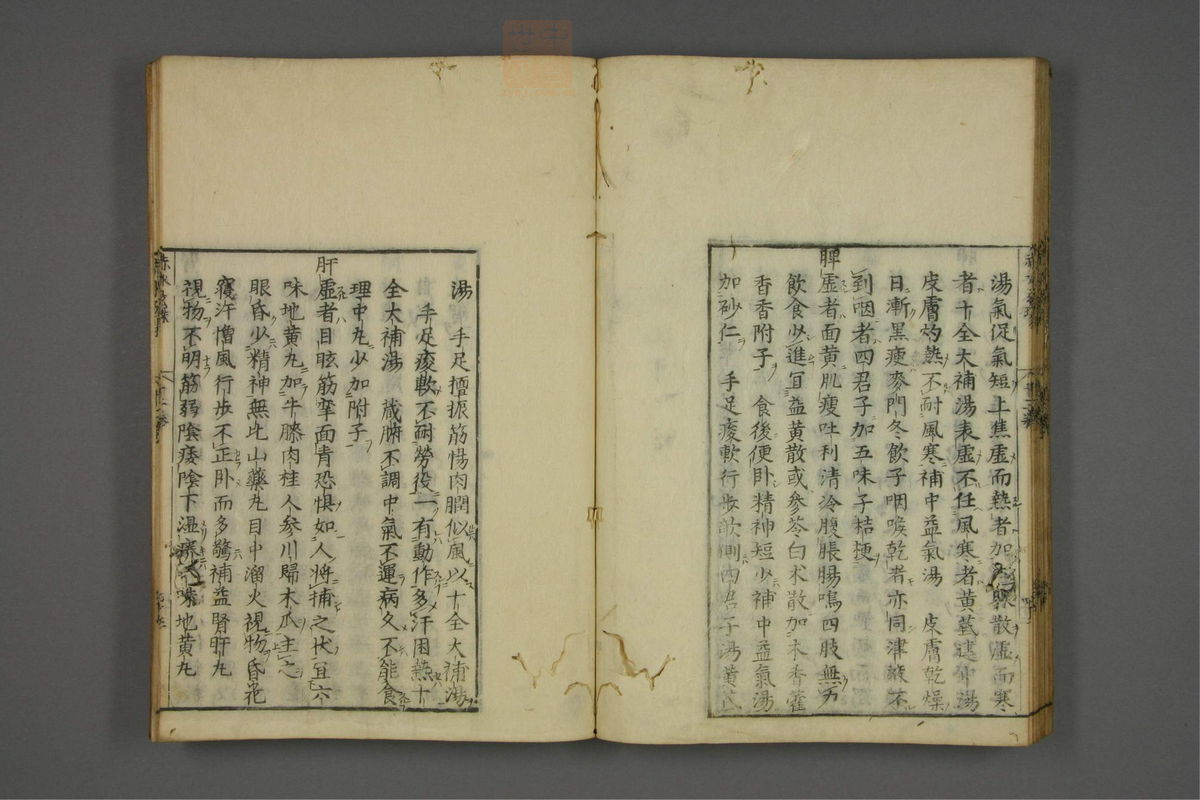 湯氣促氣短上焦虛而熱者加 散虛而寒
者十全大補湯表虛不任風寒者黃芪建中湯
皮膚灼熱不耐風寒補中益氣湯　皮膚乾燥
日漸黑瘦麥門冬飲子咽喉乾者亦同津液不
到咽者四君子加五味子桔梗
脾虛者面黃肌瘦吐利清冷腹脹腸鳴四肢無力
飲食少進宜益黃散或參苓白术散加木香藿
香香附子　食後便卧精神短少補中益氣湯
加砂仁　手足痠軟行步欹側四君子湯黃芪
湯　手足擅振筋惕肉瞤似風以十全大補湯
手足痠軟不耐勞役一有動作多汗困熱十
全大補湯　蔵腑不調中氣不運病久不能食
理中丸少加附子
肝虛者目眩筋攣面青恐惧如人將捕之状宜六
味地黃丸加牛膝肉桂人參川歸木瓜主之
眼昏少精神無比山藥丸目中溜火視物昏花
寢汗憎風行步不正卧而多驚補益腎肝丸
視物不明筋弱陰痿陰下湿 味地黃丸